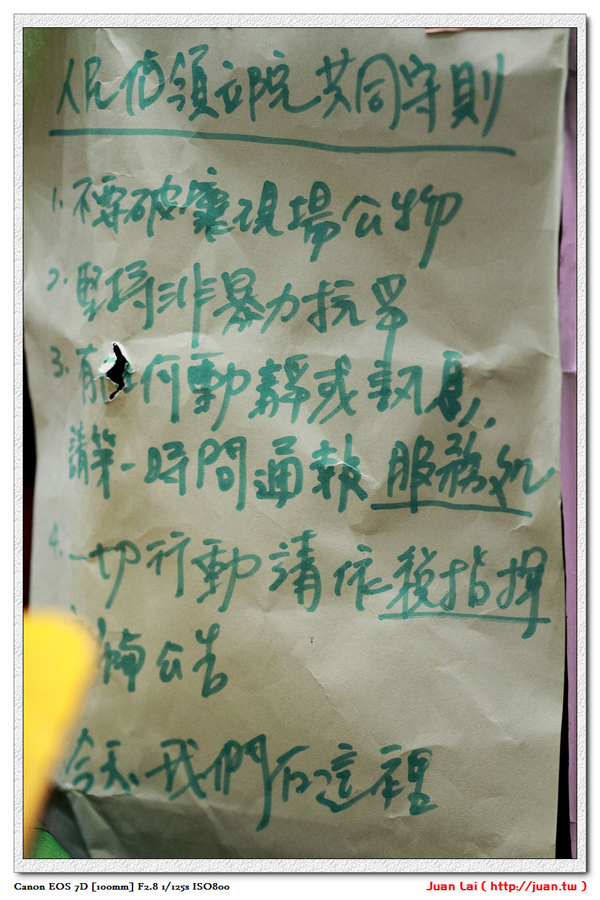 人民佔領立院共同守則
1. 不要破壞現場公物
2. 堅持非暴力抗爭
3. 有任何動靜或訊息,
請第一時間通報服務処
4. 一切行動請依指揮
公告
今天我們在這裡
Canon EOS 7D [100mm] F2.8 1/125s ISO800
Juan Lai ( http://juan.tw )